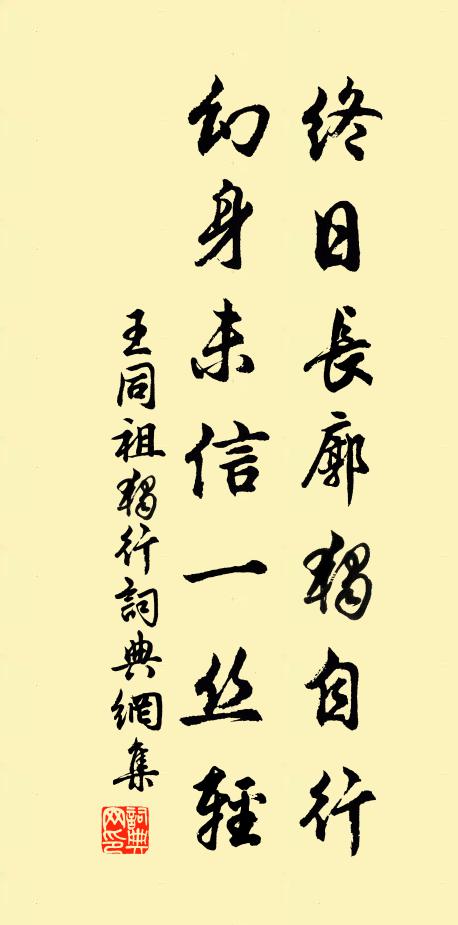 終日長廊獨自行
幻身未信一丝輕
王同祖獨行詞典網集
詞典网印